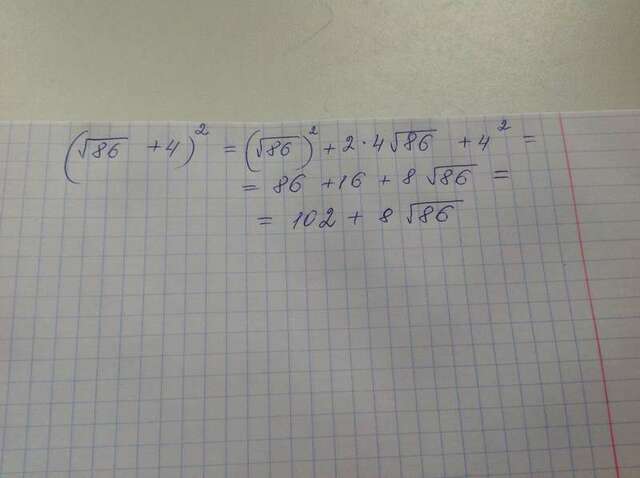 (√86 + 4)² = (√86)² + 2·4√86 + 4² =
= 86 + 16 + 8√86 =
= 102 + 8√86